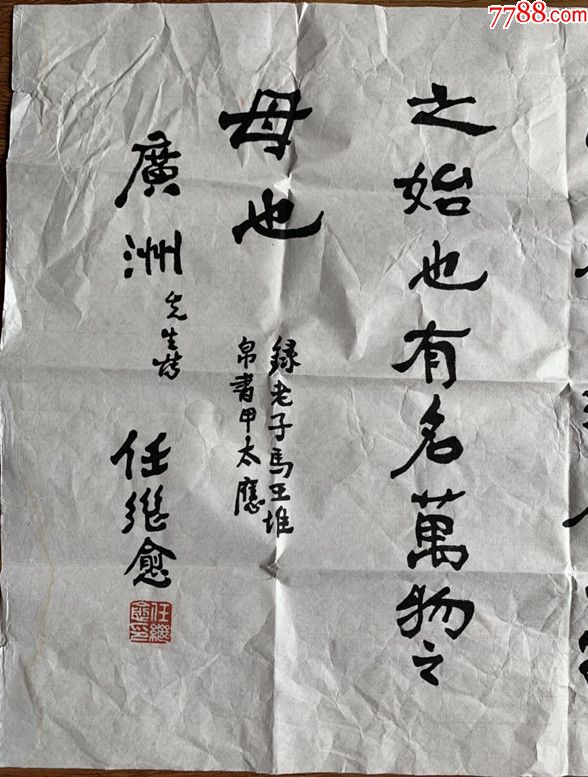 7788.com
之始也有名萬物之
母也
録老子馬王堆
帛書甲本應
廣洲先生嘱
任繼愈
任繼愈印